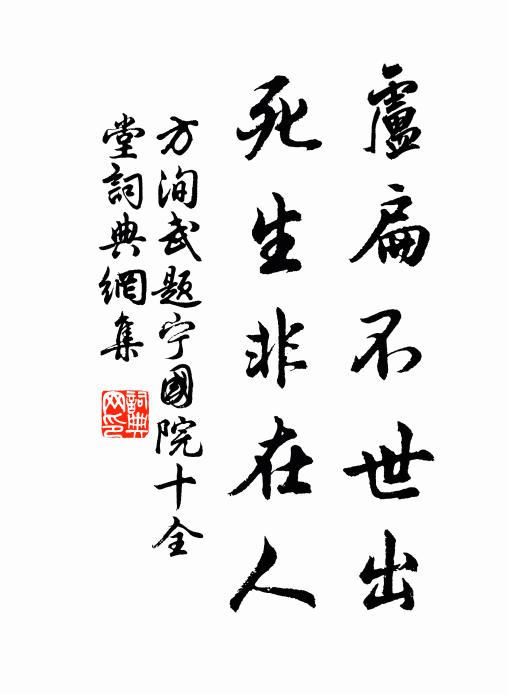 盧扁不世出
死生非在人
方洵武题宁國院十全
堂詞典網集
詞典
网印